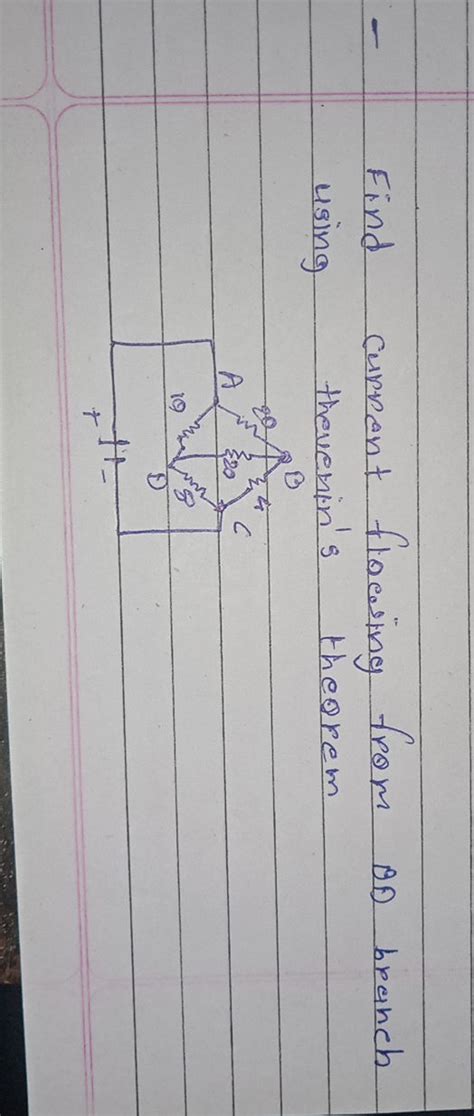 - Find current flowing from BD branch
using thevenin's theorem
B
20
4
A
20
C
10
8
D
+
-